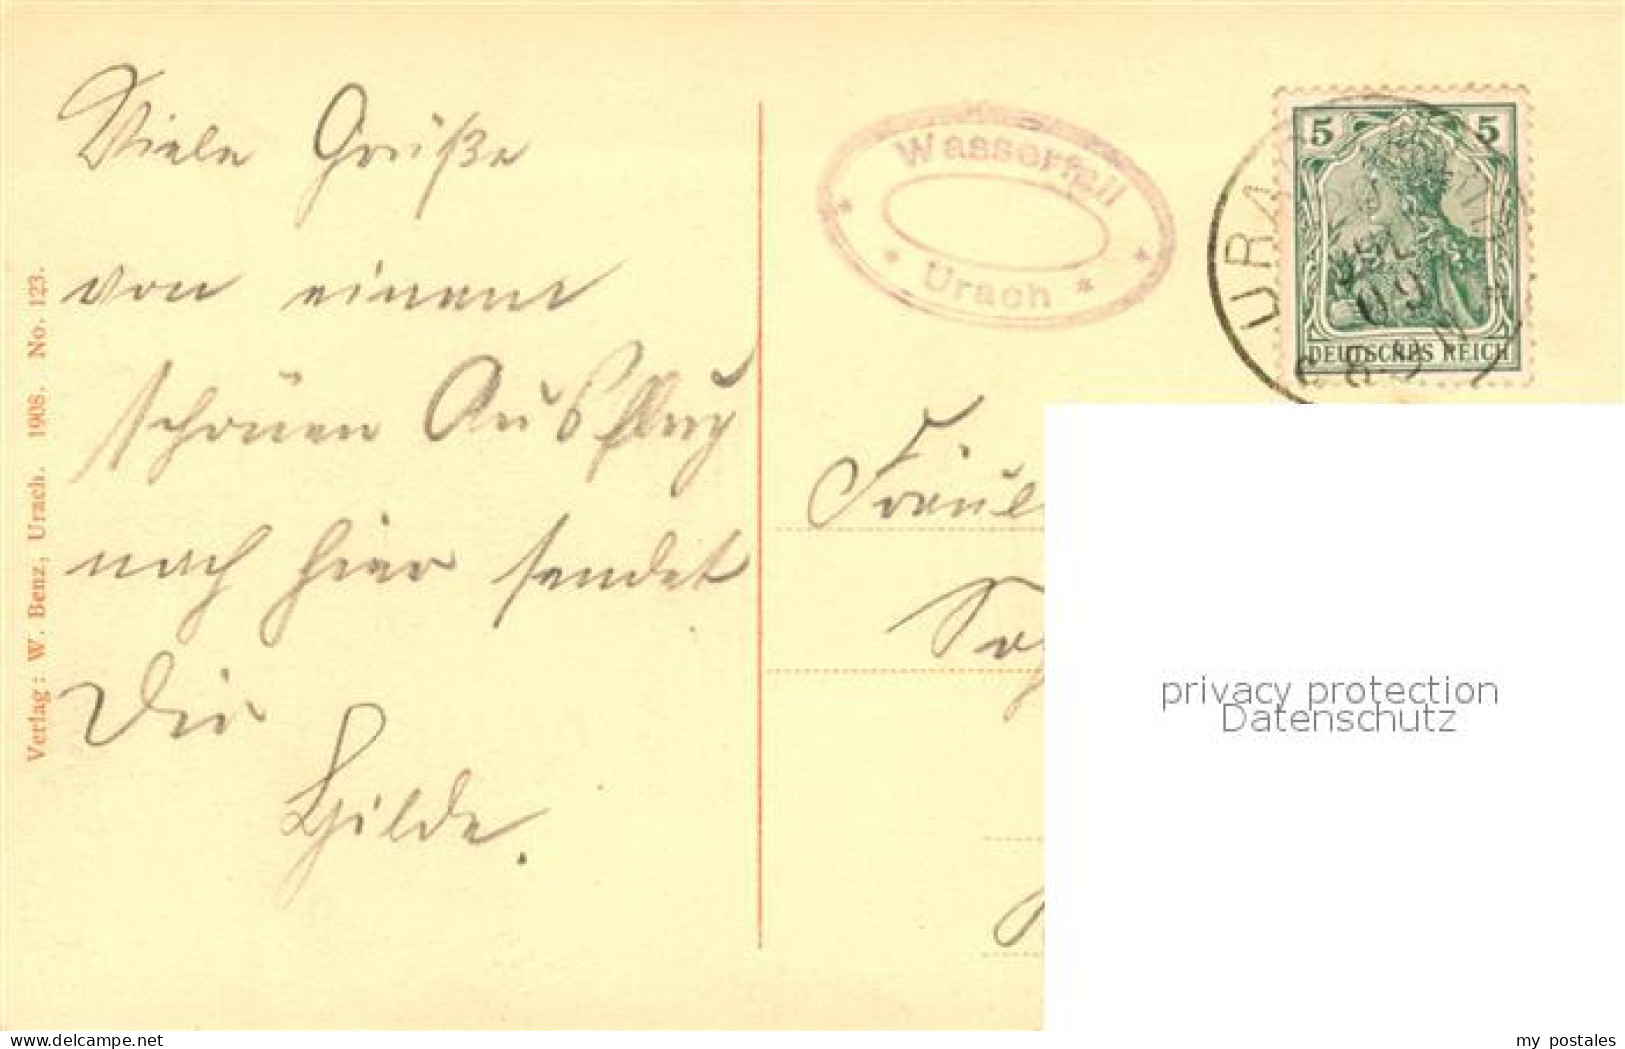 Viele Grüße
von einem
schönen Ausflug
nach hier sendet
Dir
Hilde.
Verlag: W. Benz, Urach. 1908. No. 123.
Wasserfall
Urach
5 5
DEUTSCHES REICH
URA
09
Fräul
privacy protection
Datenschutz
oldthing.com
my postales